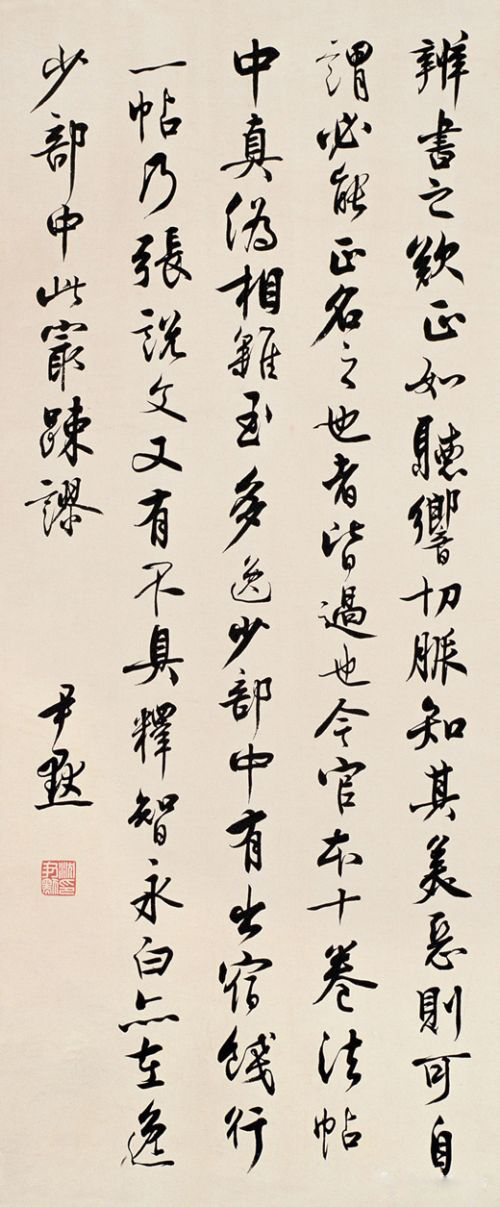 辨書之欵正如聽響切脈知其美惡則可自
謂必能正名之也者皆過也今官本十卷法帖
中真偽相雜至多逸少部中有出宿餞行
一帖乃張說文又有不具釋智永白亦在逸
少部中此最踈謬
尹默